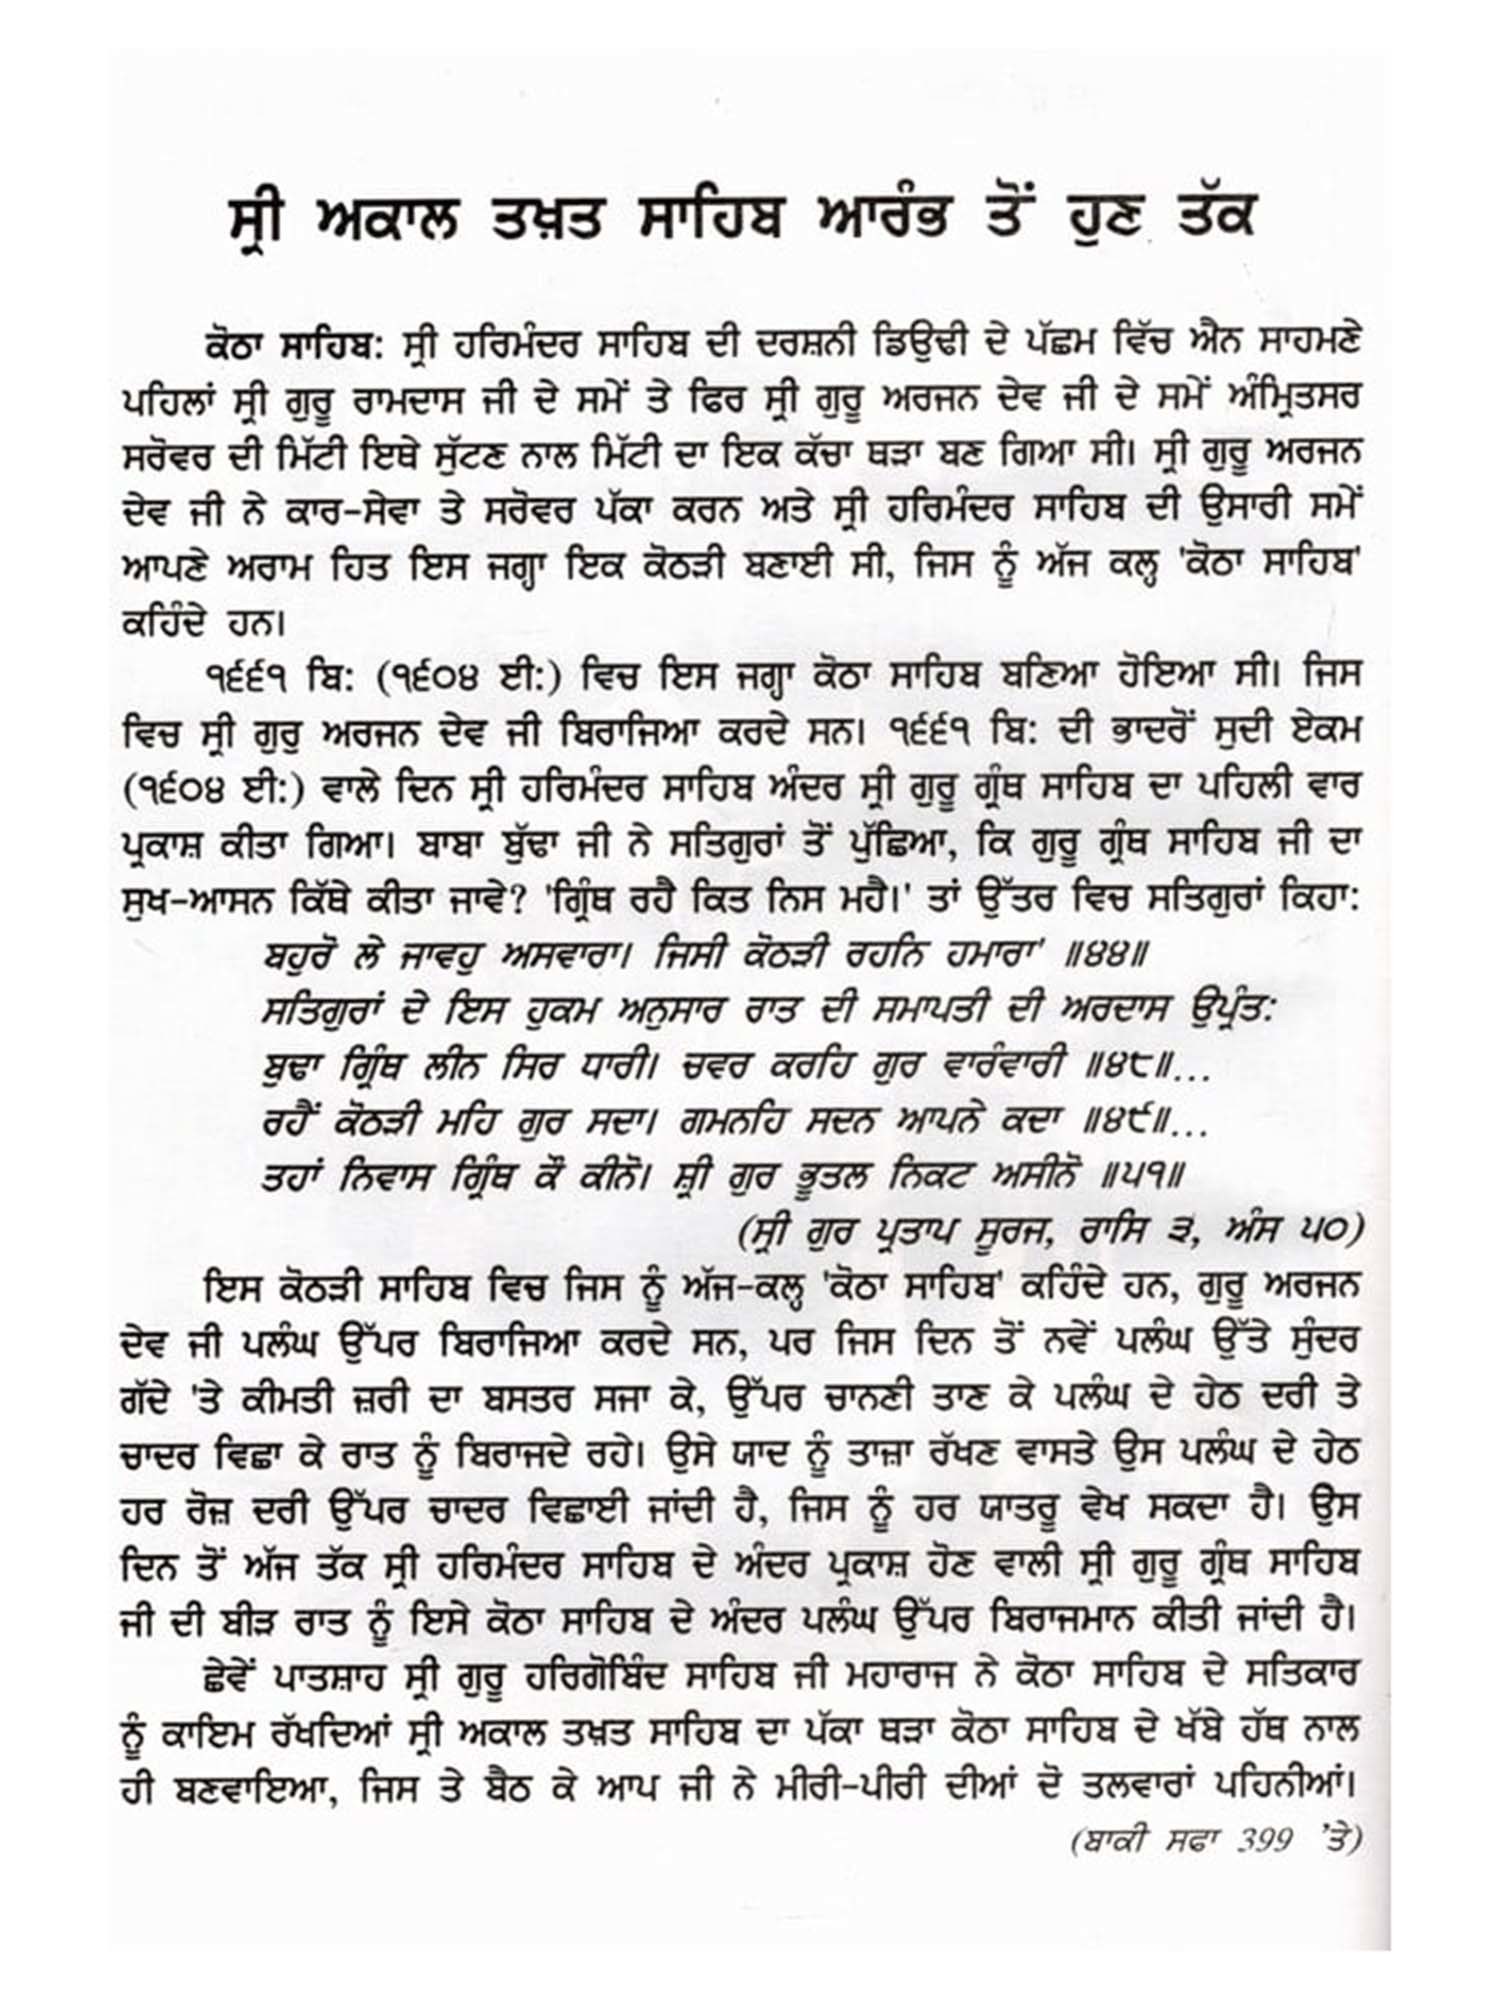 ਸ੍ਰੀ ਅਕਾਲ ਤਖ਼ਤ ਸਾਹਿਬ ਆਰੰਭ ਤੋਂ ਹੁਣ ਤੱਕ
ਕੋਠਾ ਸਾਹਿਬ: ਸ੍ਰੀ ਹਰਿਮੰਦਰ ਸਾਹਿਬ ਦੀ ਦਰਸ਼ਨੀ ਡਿਉਢੀ ਦੇ ਪੱਛਮ ਵਿੱਚ ਐਨ ਸਾਹਮਣੇ
ਪਹਿਲਾਂ ਸ੍ਰੀ ਗੁਰੂ ਰਾਮਦਾਸ ਜੀ ਦੇ ਸਮੇਂ ਤੇ ਫਿਰ ਸ੍ਰੀ ਗੁਰੂ ਅਰਜਨ ਦੇਵ ਜੀ ਦੇ ਸਮੇਂ ਅੰਮ੍ਰਿਤਸਰ
ਸਰੋਵਰ ਦੀ ਮਿੱਟੀ ਇਥੇ ਸੁੱਟਣ ਨਾਲ ਮਿੱਟੀ ਦਾ ਇਕ ਕੱਚਾ ਥੜਾ ਬਣ ਗਿਆ ਸੀ। ਸ੍ਰੀ ਗੁਰੂ ਅਰਜਨ
ਦੇਵ ਜੀ ਨੇ ਕਾਰ-ਸੇਵਾ ਤੇ ਸਰੋਵਰ ਪੱਕਾ ਕਰਨ ਅਤੇ ਸ੍ਰੀ ਹਰਿਮੰਦਰ ਸਾਹਿਬ ਦੀ ਉਸਾਰੀ ਸਮੇਂ
ਆਪਣੇ ਅਰਾਮ ਹਿਤ ਇਸ ਜਗ੍ਹਾ ਇਕ ਕੋਠੜੀ ਬਣਾਈ ਸੀ, ਜਿਸ ਨੂੰ ਅੱਜ ਕਲ੍ਹ 'ਕੋਠਾ ਸਾਹਿਬ'
ਕਹਿੰਦੇ ਹਨ।
੧੬੬੧ ਬਿ: (੧੬੦੪ ਈ:) ਵਿਚ ਇਸ ਜਗ੍ਹਾ ਕੋਠਾ ਸਾਹਿਬ ਬਣਿਆ ਹੋਇਆ ਸੀ। ਜਿਸ
ਵਿਚ ਸ੍ਰੀ ਗੁਰੁ ਅਰਜਨ ਦੇਵ ਜੀ ਬਿਰਾਜਿਆ ਕਰਦੇ ਸਨ। ੧੬੬੧ ਬਿ: ਦੀ ਭਾਦਰੋਂ ਸੁਦੀ ਏਕਮ
(੧੬੦੪ ਈ:) ਵਾਲੇ ਦਿਨ ਸ੍ਰੀ ਹਰਿਮੰਦਰ ਸਾਹਿਬ ਅੰਦਰ ਸ੍ਰੀ ਗੁਰੂ ਗ੍ਰੰਥ ਸਾਹਿਬ ਦਾ ਪਹਿਲੀ ਵਾਰ
ਪ੍ਰਕਾਸ਼ ਕੀਤਾ ਗਿਆ। ਬਾਬਾ ਬੁੱਢਾ ਜੀ ਨੇ ਸਤਿਗੁਰਾਂ ਤੋਂ ਪੁੱਛਿਆ, ਕਿ ਗੁਰੂ ਗ੍ਰੰਥ ਸਾਹਿਬ ਜੀ ਦਾ
ਸੁਖ-ਆਸਨ ਕਿੱਥੇ ਕੀਤਾ ਜਾਵੇ? 'ਗ੍ਰਿੰਥ ਰਹੈ ਕਿਤ ਨਿਸ ਮਹੈ।' ਤਾਂ ਉੱਤਰ ਵਿਚ ਸਤਿਗੁਰਾਂ ਕਿਹਾ:
ਬਹੁਰੋ ਲੇ ਜਾਵਹੁ ਅਸਵਾਰਾ। ਜਿਸੀ ਕੋਠੜੀ ਰਹਨਿ ਹਮਾਰਾ' ॥੪੪॥
ਸਤਿਗੁਰਾਂ ਦੇ ਇਸ ਹੁਕਮ ਅਨੁਸਾਰ ਰਾਤ ਦੀ ਸਮਾਪਤੀ ਦੀ ਅਰਦਾਸ ਉਪ੍ਰੰਤ:
ਬੁਢਾ ਗ੍ਰਿੰਥ ਲੀਨ ਸਿਰ ਧਾਰੀ। ਚਵਰ ਕਰਹਿ ਗੁਰ ਵਾਰੰਵਾਰੀ ॥੪੮॥...
ਰਹੈਂ ਕੋਠੜੀ ਮਹਿ ਗੁਰ ਸਦਾ। ਗਮਨਹਿ ਸਦਨ ਆਪਨੇ ਕਦਾ ॥੪੯॥...
ਤਹਾਂ ਨਿਵਾਸ ਗ੍ਰਿੰਥ ਕੌ ਕੀਨੋ। ਸ਼੍ਰੀ ਗੁਰ ਭੂਤਲ ਨਿਕਟ ਅਸੀਨੋ ॥੫੧॥
(ਸ੍ਰੀ ਗੁਰ ਪ੍ਰਤਾਪ ਸੂਰਜ, ਰਾਸਿ ੩, ਅੰਸ ੫੦)
ਇਸ ਕੋਠੜੀ ਸਾਹਿਬ ਵਿਚ ਜਿਸ ਨੂੰ ਅੱਜ-ਕਲ੍ਹ 'ਕੋਠਾ ਸਾਹਿਬ' ਕਹਿੰਦੇ ਹਨ, ਗੁਰੂ ਅਰਜਨ
ਦੇਵ ਜੀ ਪਲੰਘ ਉੱਪਰ ਬਿਰਾਜਿਆ ਕਰਦੇ ਸਨ, ਪਰ ਜਿਸ ਦਿਨ ਤੋਂ ਨਵੇਂ ਪਲੰਘ ਉੱਤੇ ਸੁੰਦਰ
ਗੱਦੇ 'ਤੇ ਕੀਮਤੀ ਜ਼ਰੀ ਦਾ ਬਸਤਰ ਸਜਾ ਕੇ, ਉੱਪਰ ਚਾਨਣੀ ਤਾਣ ਕੇ ਪਲੰਘ ਦੇ ਹੇਠ ਦਰੀ ਤੇ
ਚਾਦਰ ਵਿਛਾ ਕੇ ਰਾਤ ਨੂੰ ਬਿਰਾਜਦੇ ਰਹੇ। ਉਸੇ ਯਾਦ ਨੂੰ ਤਾਜ਼ਾ ਰੱਖਣ ਵਾਸਤੇ ਉਸ ਪਲੰਘ ਦੇ ਹੇਠ
ਹਰ ਰੋਜ਼ ਦਰੀ ਉੱਪਰ ਚਾਦਰ ਵਿਛਾਈ ਜਾਂਦੀ ਹੈ, ਜਿਸ ਨੂੰ ਹਰ ਯਾਤਰੂ ਵੇਖ ਸਕਦਾ ਹੈ। ਉਸ
ਦਿਨ ਤੋਂ ਅੱਜ ਤੱਕ ਸ੍ਰੀ ਹਰਿਮੰਦਰ ਸਾਹਿਬ ਦੇ ਅੰਦਰ ਪ੍ਰਕਾਸ਼ ਹੋਣ ਵਾਲੀ ਸ੍ਰੀ ਗੁਰੂ ਗ੍ਰੰਥ ਸਾਹਿਬ
ਜੀ ਦੀ ਬੀੜ ਰਾਤ ਨੂੰ ਇਸੇ ਕੋਠਾ ਸਾਹਿਬ ਦੇ ਅੰਦਰ ਪਲੰਘ ਉੱਪਰ ਬਿਰਾਜਮਾਨ ਕੀਤੀ ਜਾਂਦੀ ਹੈ।
ਛੇਵੇਂ ਪਾਤਸ਼ਾਹ ਸ੍ਰੀ ਗੁਰੂ ਹਰਿਗੋਬਿੰਦ ਸਾਹਿਬ ਜੀ ਮਹਾਰਾਜ ਨੇ ਕੋਠਾ ਸਾਹਿਬ ਦੇ ਸਤਿਕਾਰ
ਨੂੰ ਕਾਇਮ ਰੱਖਦਿਆਂ ਸ੍ਰੀ ਅਕਾਲ ਤਖ਼ਤ ਸਾਹਿਬ ਦਾ ਪੱਕਾ ਥੜਾ ਕੋਠਾ ਸਾਹਿਬ ਦੇ ਖੱਬੇ ਹੱਥ ਨਾਲ
ਹੀ ਬਣਵਾਇਆ, ਜਿਸ ਤੇ ਬੈਠ ਕੇ ਆਪ ਜੀ ਨੇ ਮੀਰੀ-ਪੀਰੀ ਦੀਆਂ ਦੋ ਤਲਵਾਰਾਂ ਪਹਿਨੀਆਂ।
(ਬਾਕੀ ਸਫਾ 399 'ਤੇ)